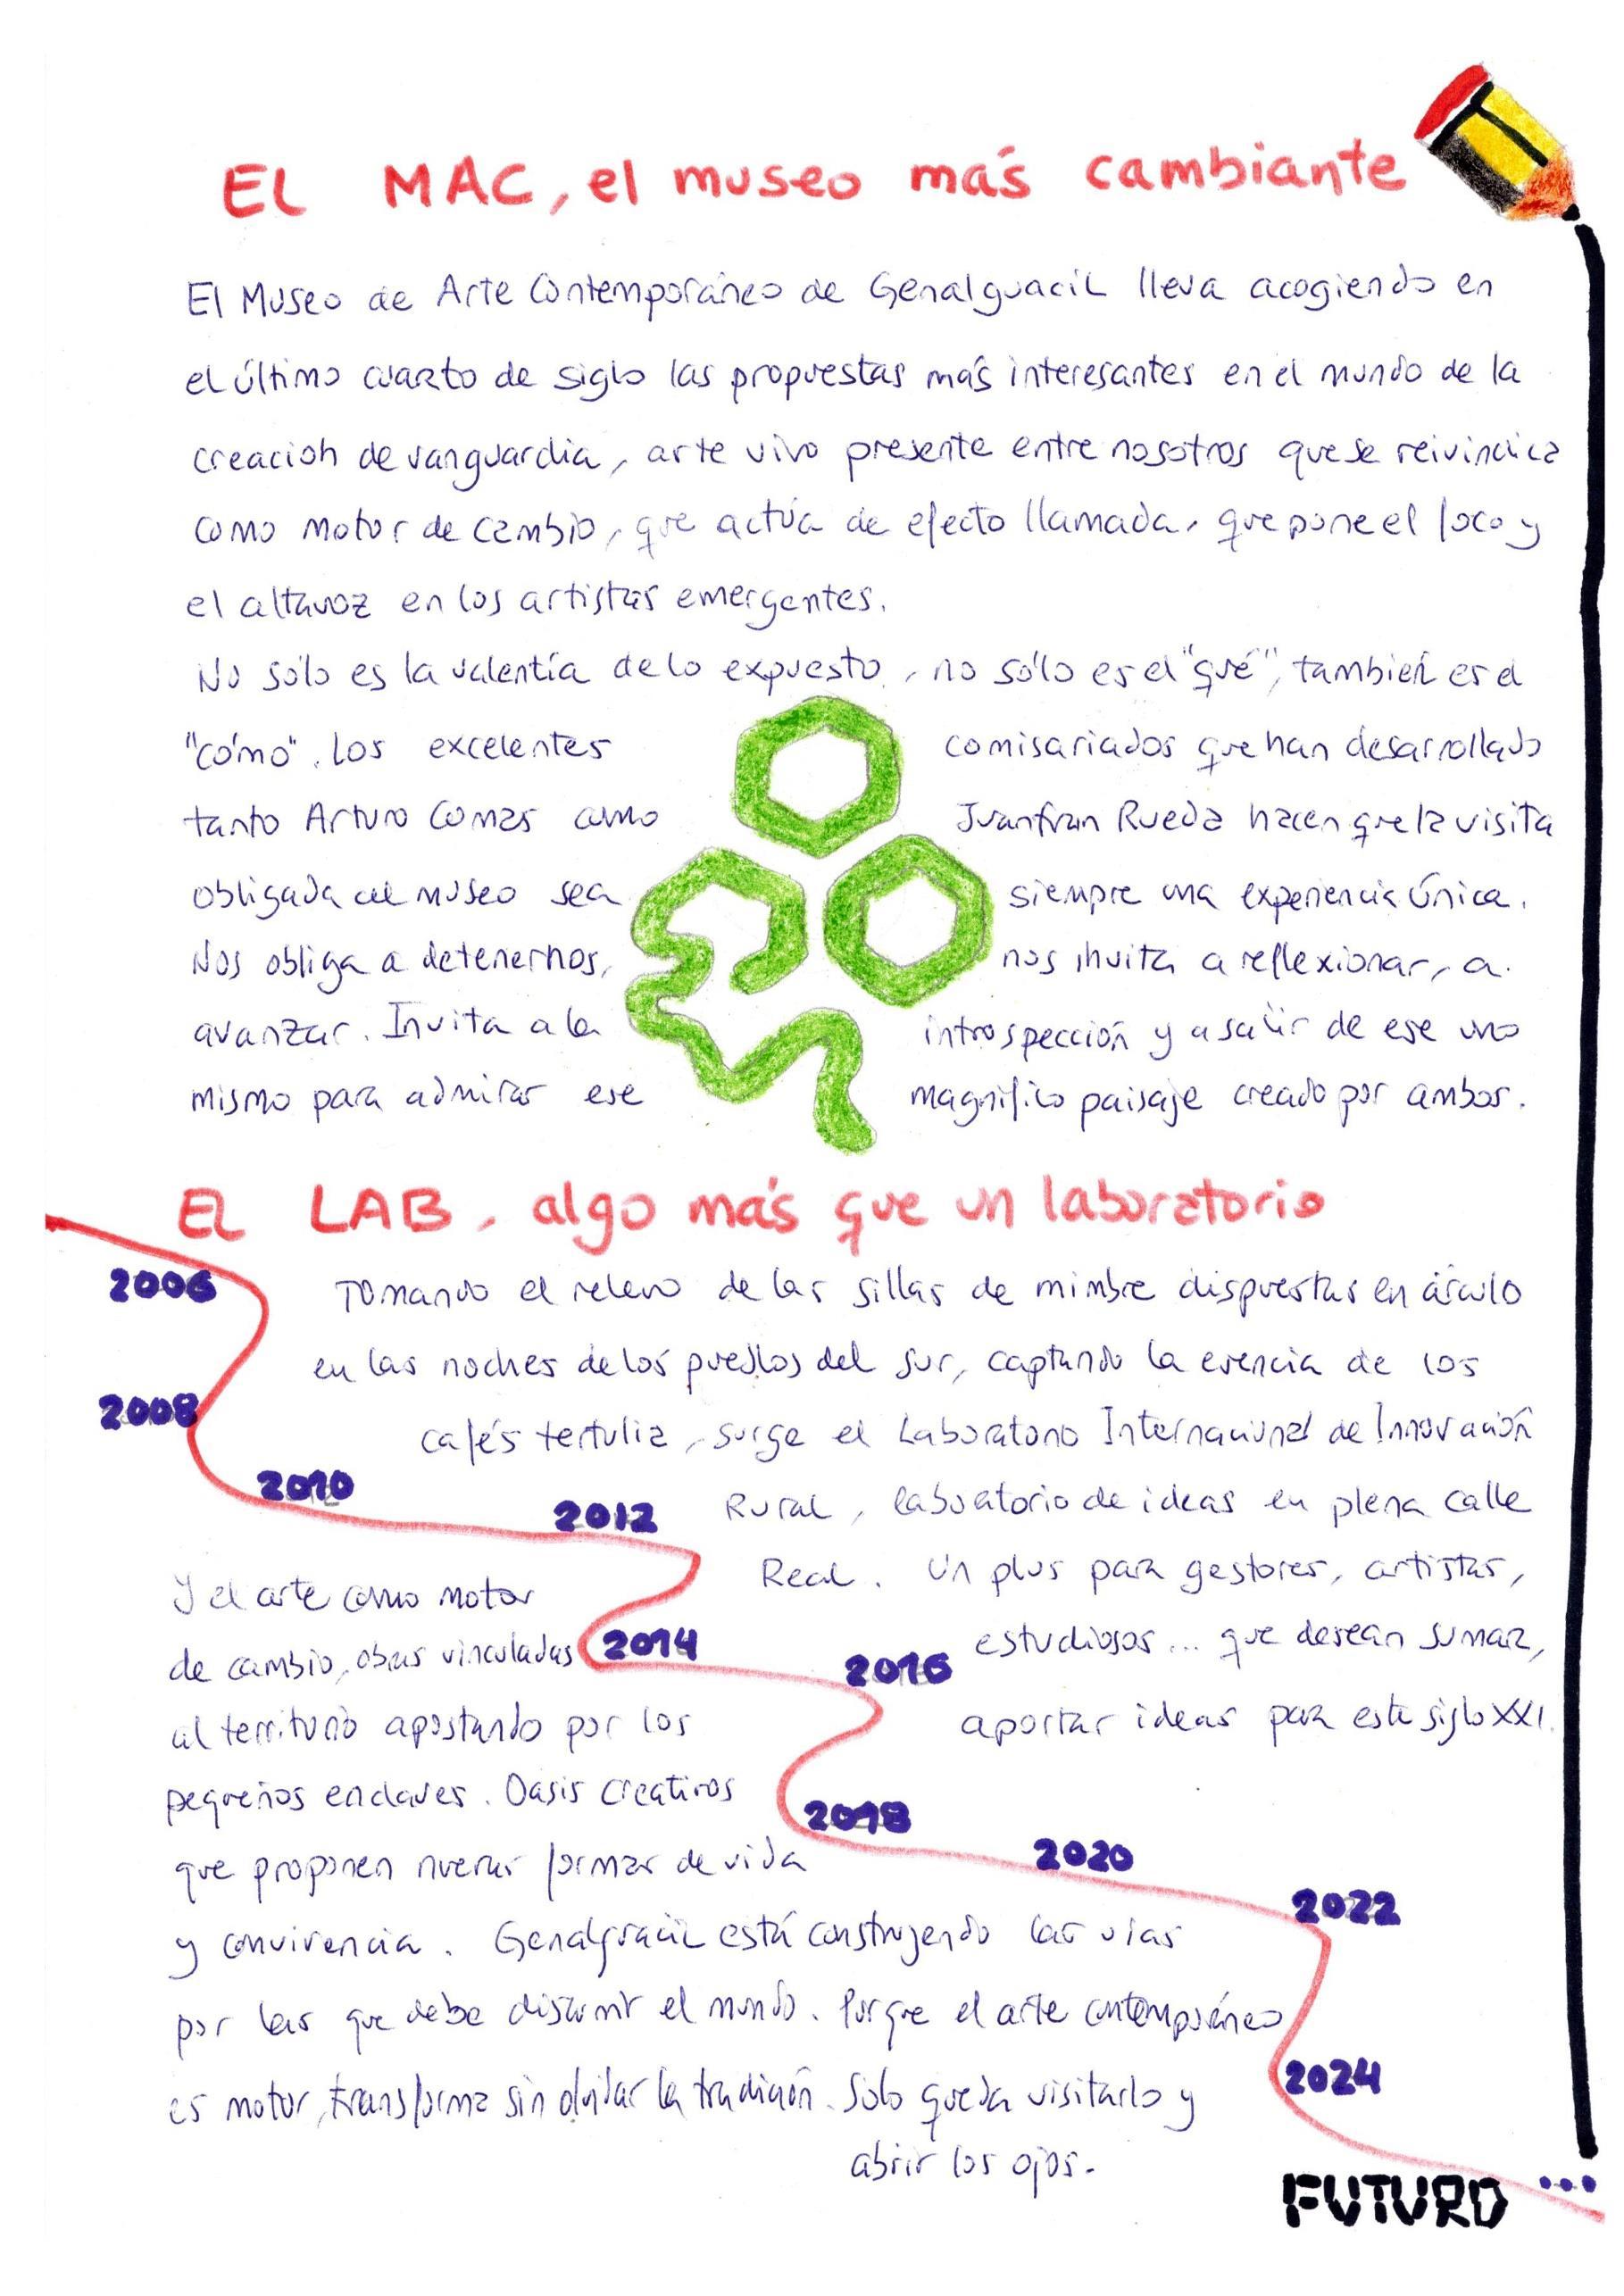 EL MAC, el museo más cambiante
El Museo de Arte Contemporáneo de Genalguacil lleva acogiendo en
el último cuarto de siglo las propuestas más interesantes en el mundo de la
creación de vanguardia, arte vivo presente entre nosotros que se reivindica
como motor de cambio, que actúa de efecto llamada, que pone el foco y
el altavoz en los artistas emergentes.
No sólo es la valentía de lo expuesto, no sólo es el "qué", también es el
"cómo". Los excelentes comisariados que han desarrollado
tanto Arturo Comas como Juanfran Rueda hacen que la visita
obligada al museo sea siempre una experiencia única.
Nos obliga a detenernos, nos invita a reflexionar, a
avanzar. Invita a la introspección y a salir de ese uno
mismo para admirar ese magnífico paisaje creado por ambos.
EL LAB, algo más que un laboratorio
2006
Tomando el relevo de las sillas de mimbre dispuestas en círculo
en las noches de los pueblos del sur, captando la esencia de los
2008
cafés tertulia, surge el Laboratorio Internacional de Innovación
2010
2012
Rural, laboratorio de ideas en plena calle
Real. Un plus para gestores, artistas,
estudiosos... que desean sumar,
aportar ideas para este siglo XXI.
Y el arte como motor
de cambio, obras vinculadas
2014
2016
al territorio apostando por los
pequeños enclaves. Oasis creativos
2018
que proponen nuevas formas de vida
2020
2022
y convivencia. Genalguacil está construyendo las vías
por las que debe discurrir el mundo. Porque el arte contemporáneo
es motor, transforma sin olvidar la tradición. Solo queda visitarlo y
2024
abrir los ojos.
FUTURO ...